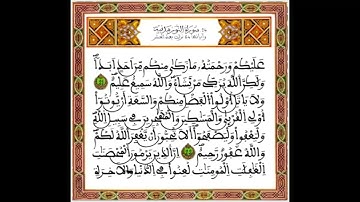 سورة النور مدنية
نزلت بعد الحشر
عَلَيْكُمْ وَرَحْمَتُهُ مَا زَكَىٰ مِنكُم مِّنْ أَحَدٍ أَبَدًا
وَلَٰكِنَّ اللَّهَ يُزَكِّي مَنْ يَّشَاءُ وَاللَّهُ سَمِيعٌ عَلِيمٌ
وَلَا يَاتَلِ أُوْلُوا الْفَضْلِ مِنكُمْ وَالسَّعَةِ أَنْ يُّوتُوا
أُوْلِي الْقُرْبَىٰ وَالْمَسَٰكِينَ وَالْمُهَٰجِرِينَ فِي سَبِيلِ اللَّهِ
وَلْيَعْفُوا وَلْيَصْفَحُوا أَلَا تُحِبُّونَ أَنْ يَّغْفِرَ اللَّهُ لَكُمْ
وَاللَّهُ غَفُورٌ رَّحِيمٌ إِنَّ الَّذِينَ يَرْمُونَ الْمُحْصَنَٰتِ
الْغَٰفِلَٰتِ الْمُومِنَٰتِ لُعِنُوا فِي الدُّنْيَا وَالْآخِرَةِ